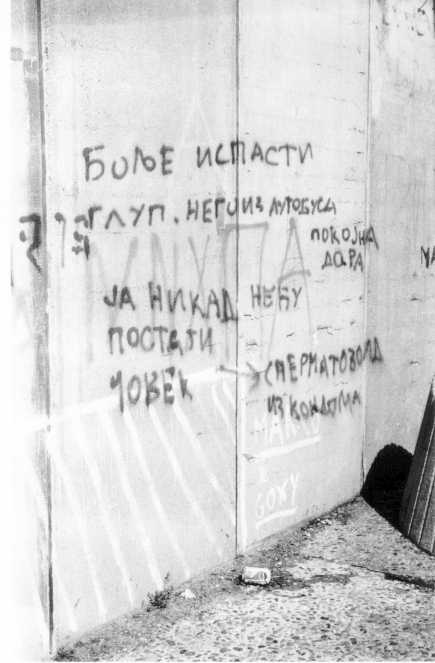 БОЉЕ ИСПАСТИ
ГЛУП. НЕГО ИЗ АУТОБУСА
ПОКОЈНА
ДАРА
ЈА НИКАД НЕЋУ
ПОСТАТИ
ЧОВЕК
СПЕРМАТОЗОИД
ИЗ КОНДОМА
GOXY